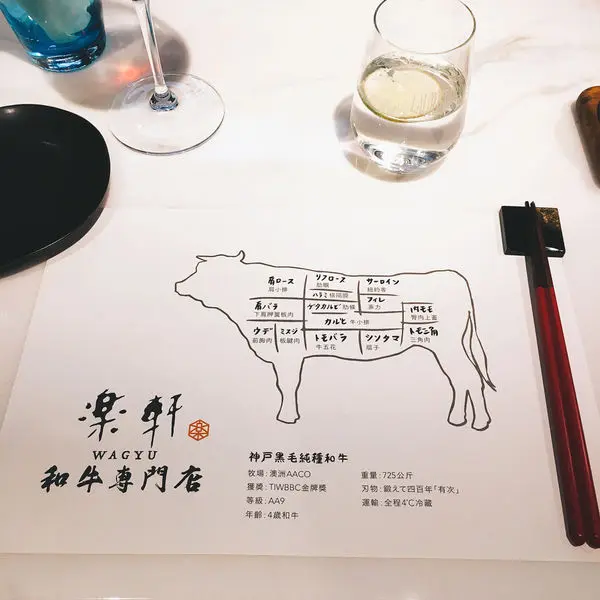 肩ロース
肩小排
リブロース
肋眼
サーロイン
紐約客
ハラミ 橫隔膜
肩バラ
下肩胛翼板肉
ゲタカルビ 肋條
フィレ
菲力
カルビ 牛小排
内モモ
臀肉上蓋
ウデ
前胸肉
ミスジ
板腱肉
トモバラ
牛五花
シンタマ
腿子
トモ三角
三角肉
楽軒
WAGYU
和牛專門店
神戸黒毛純種和牛
牧場：澳洲AACO
獲獎：TIWBBC金牌獎
等級：AA9
年齡：4歲和牛
重量：725公斤
刃物：鍛えて四百年「有次」
運輸：全程4℃冷藏